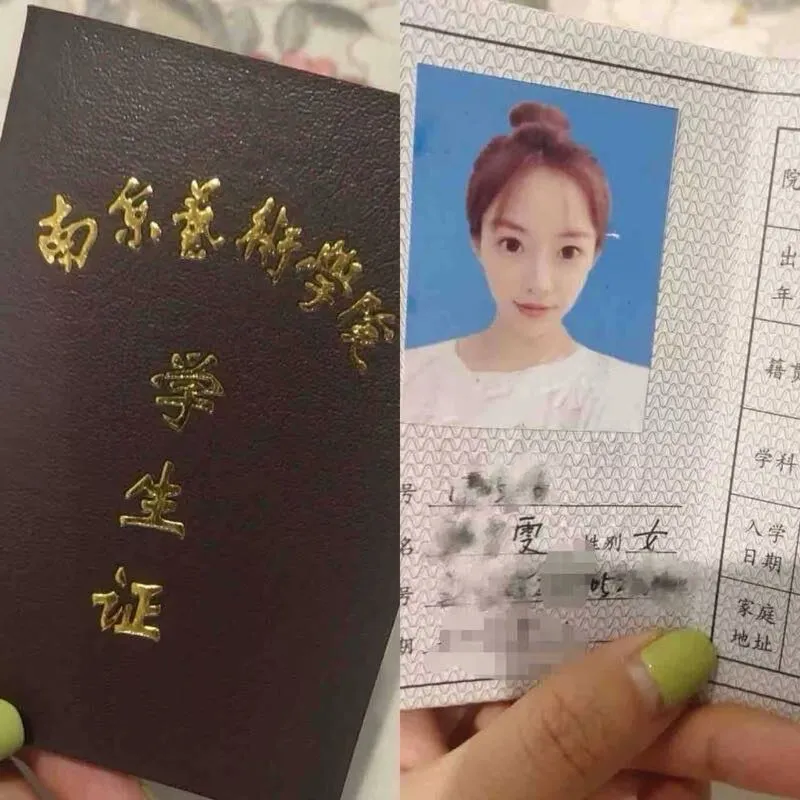 南京藝術學院
学
生
证
院
出
年
籍贯
学科
入学
日期
家庭
地址
号
名 雯 性别 女
号 05
期